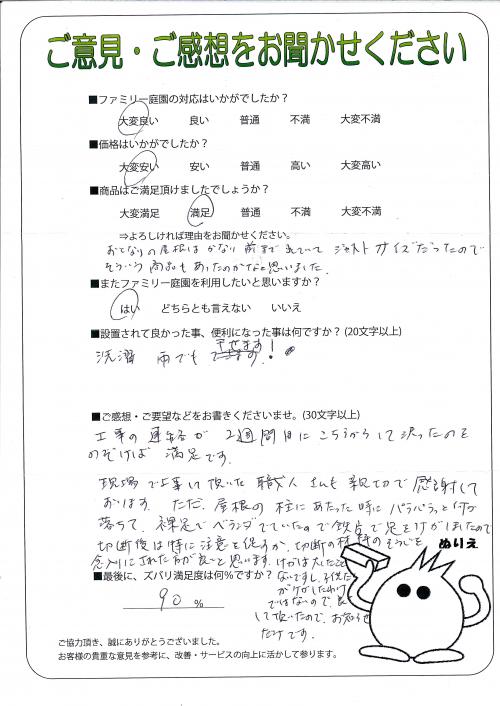 ご意見・ご感想をお聞かせください
■ファミリー庭園の対応はいかがでしたか？
大変良い 良い 普通 不満 大変不満
■価格はいかがでしたか？
大変安い 安い 普通 高い 大変高い
■商品はご満足頂けましたでしょうか？
大変満足 満足 普通 不満 大変不満
⇒よろしければ理由をお聞かせください。
おとなりの屋根はかなり前まで出ていて ジャストサイズだったので
そういう商品もあったのかなと思いました。
■またファミリー庭園を利用したいと思いますか？
はい どちらとも言えない いいえ
■設置されて良かった事、便利になった事は何ですか？(20文字以上)
洗濯 雨でも 干せます!
■ご感想・ご要望などをお書きくださいませ。(30文字以上)
工事の連絡が 2週間目にこちらからして決ったのを
のぞけば 満足です。
現場で工事して頂いた 職人さんも親切で 感謝して
おります。ただ、屋根の柱にあたった時に パラパラっと
落ちて、裸足でベランダでていたので鉄白で足をけがしましたので
切断後は特に注意を促すか、切断の材料のそうじを
念入りにされた方が良いと思います。けがは大したこと
ないですし、子供たち
がケガしたわけ
ではないので、良く
して頂いたので、お知らせ
だけです。
ぬりえ
■最後に、ズバリ満足度は何%ですか？
90 %
ご協力頂き、誠にありがとうございました。
お客様の貴重な意見を参考に、改善・サービスの向上に活かして参ります。